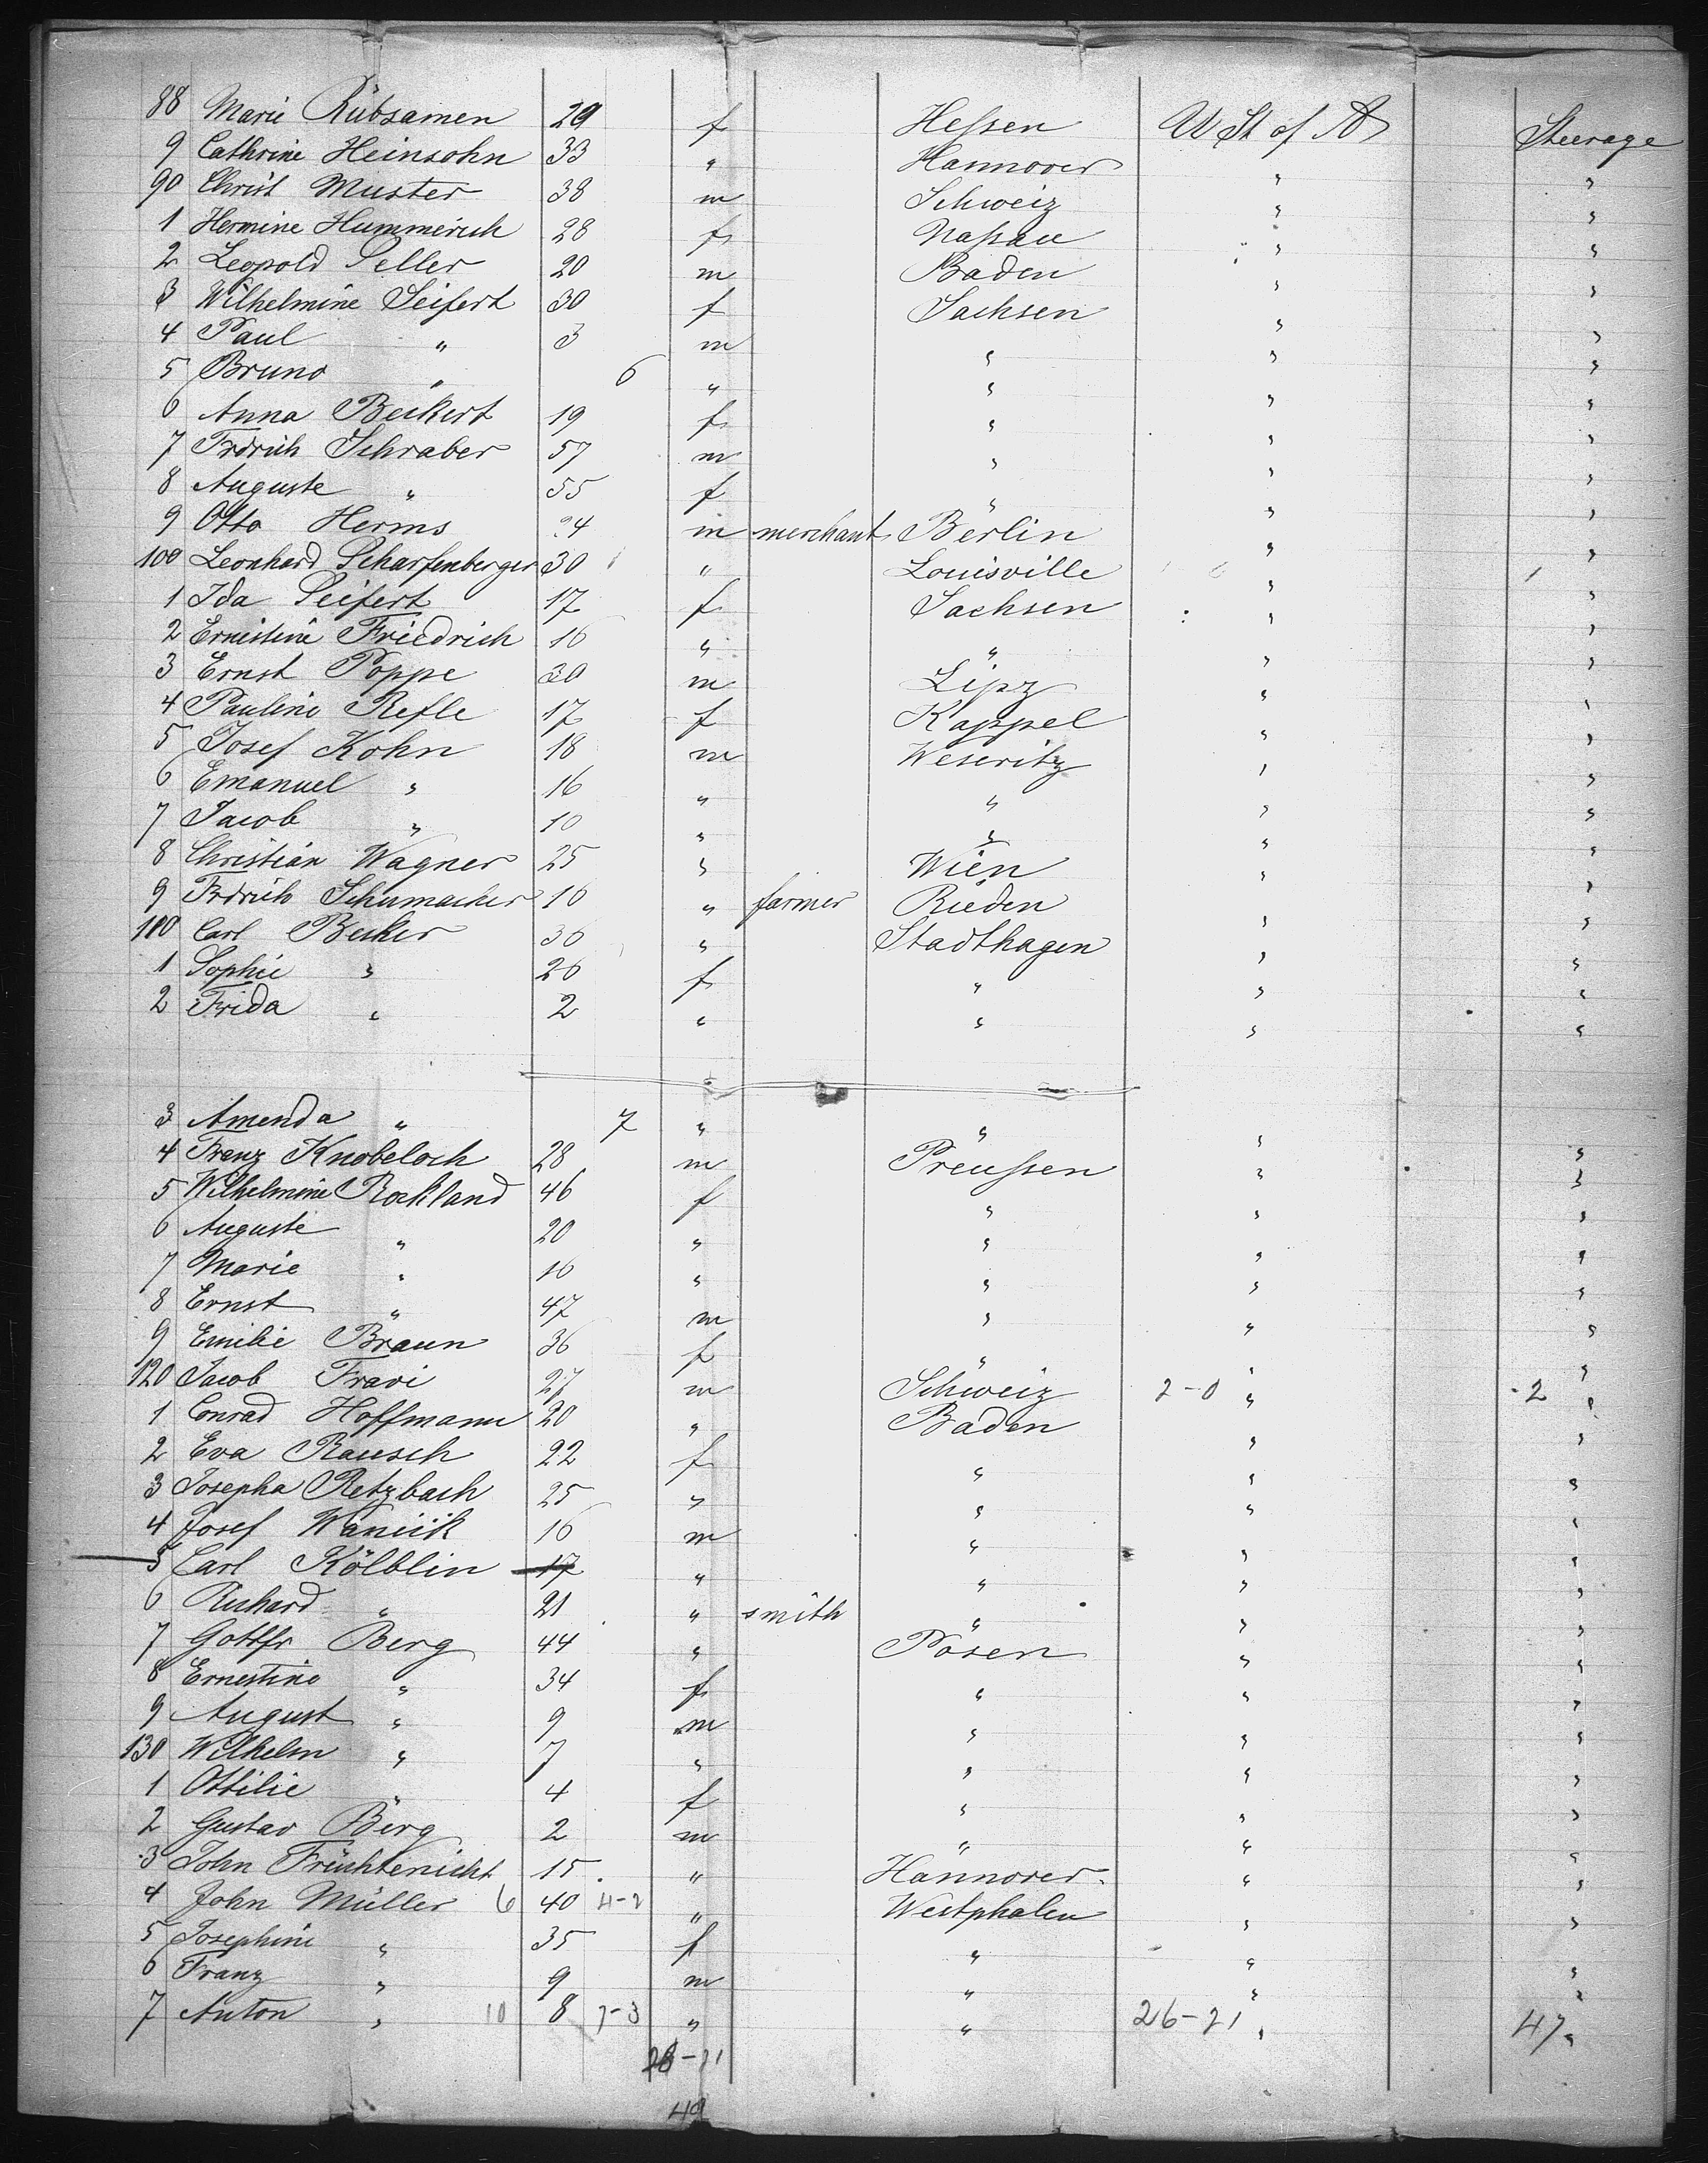 88 Marie Rübsamen 29 f Hessen U St of A Steerage
9 Cathrine Heinsohn 33 " Hannover " "
90 Christ Muster 38 m Schweiz " "
1 Hermine Hummerich 28 f Nassau " "
2 Leopold Seller 20 m Baden " "
3 Wilhelmine Seifert 30 f Sachsen " "
4 Paul " 3 m " " "
5 Bruno " 6 " " " "
6 Anna Beckert 19 f " " "
7 Frdrich Schraber 57 m " " "
8 Auguste " 55 f " " "
9 Otto Herms 24 m merchant Berlin " "
100 Leonhard Scharfenberger 30 " Louisville " "
1 Ida Seifert 17 f Sachsen " "
2 Ernestine Friedrich 16 " " " "
3 Ernst Poppe 30 m Lipz " "
4 Pauline Refle 17 f Kappel " "
5 Josef Kohn 18 m Weseritz " "
6 Emanuel " 16 " " " "
7 Jacob " 10 " " " "
8 Christian Wagner 25 " Wien " "
9 Frdrich Schumacher 16 " farmer Rieden " "
110 Carl Becker 36 " Stadthagen " "
1 Sophie " 26 f " " "
2 Frida " 2 " " " "
3 Amenda " 7 " " " "
4 Franz Knobeloch 28 m Preussen " "
5 Wilhelmine Rockland 46 f " " "
6 Auguste " 20 " " " "
7 Marie " 16 " " " "
8 Ernst " 47 m " " "
9 Emilie Braun 36 f " " "
120 Jacob Fravi 27 m Schweiz 2-0 " 2 "
1 Conrad Hoffmann 20 " Baden " "
2 Eva Rausch 22 f " " "
3 Josepha Retzbach 25 " " " "
4 Josef Waniik 16 m " " "
5 Carl Kölblin 17 " " " "
6 Richard " 21 " smith " " "
7 Gottfr Berg 44 " Posen " "
8 Ernestine " 34 f " " "
9 August " 9 m " " "
130 Wilhelm " 7 " " " "
1 Ottilie " 4 f " " "
2 Gustav Berg 2 m " " "
3 John Früchtenicht 15 " Hannover " "
4 John Müller 6 40 4-2 " Westphalen " "
5 Josephine " 35 f " " "
6 Franz " 9 m " " "
7 Anton " 10 8 7-3 " " 26-21 " 47 "
28-21
49